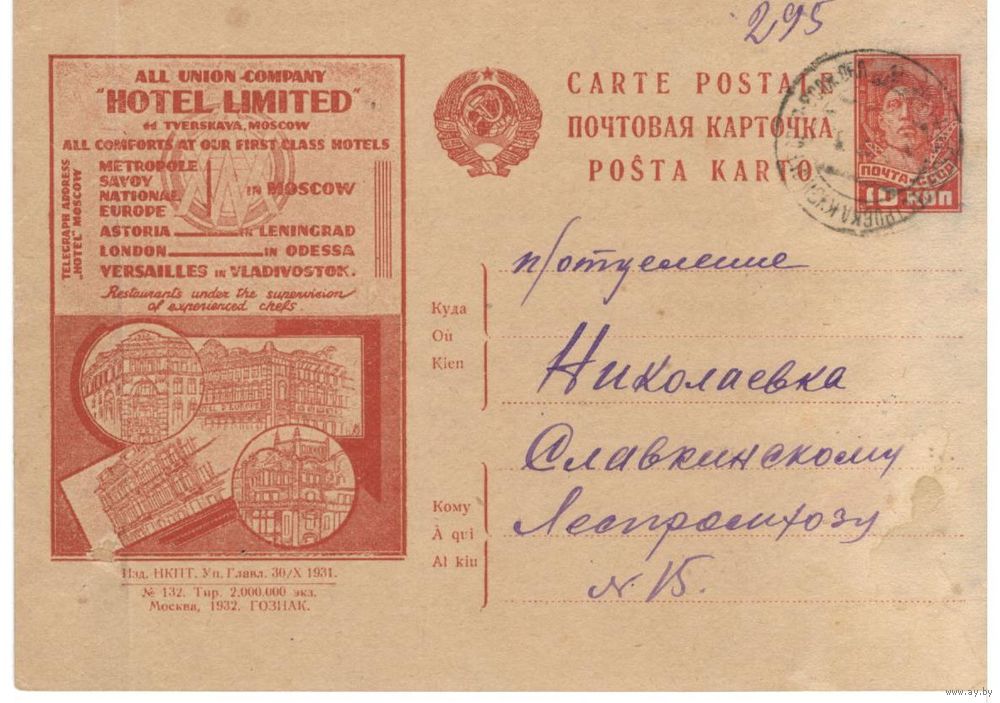 295
ALL UNION COMPANY
"HOTEL LIMITED"
TVERSKAYA, MOSCOW
ALL COMFORTS AT OUR FIRST CLASS HOTELS
TELEGRAPH ADDRESS
"HOTEL" MOSCOW
METROPOLE
SAVOY
NATIONAL
EUROPE
IN MOSCOW
ASTORIA IN LENINGRAD
LONDON IN ODESSA
VERSAILLES IN VLADIVOSTOK.
Restaurants under the supervision
of experienced chefs.
CARTE POSTALE
ПОЧТОВАЯ КАРТОЧКА
POŜTA KARTO
ПОЧТА СССР
10 КОП
Куда
Où
Kien
п/отделение
Николаевка
Славкинскому
Кому
À qui
Al kiu
Леспромхозу
N. 15.
Изд. НКПТ. Уп. Главл. 30/X 1931.
№ 132. Тир. 2.000.000 экз.
Москва, 1932. ГОЗНАК.
www.ay.by